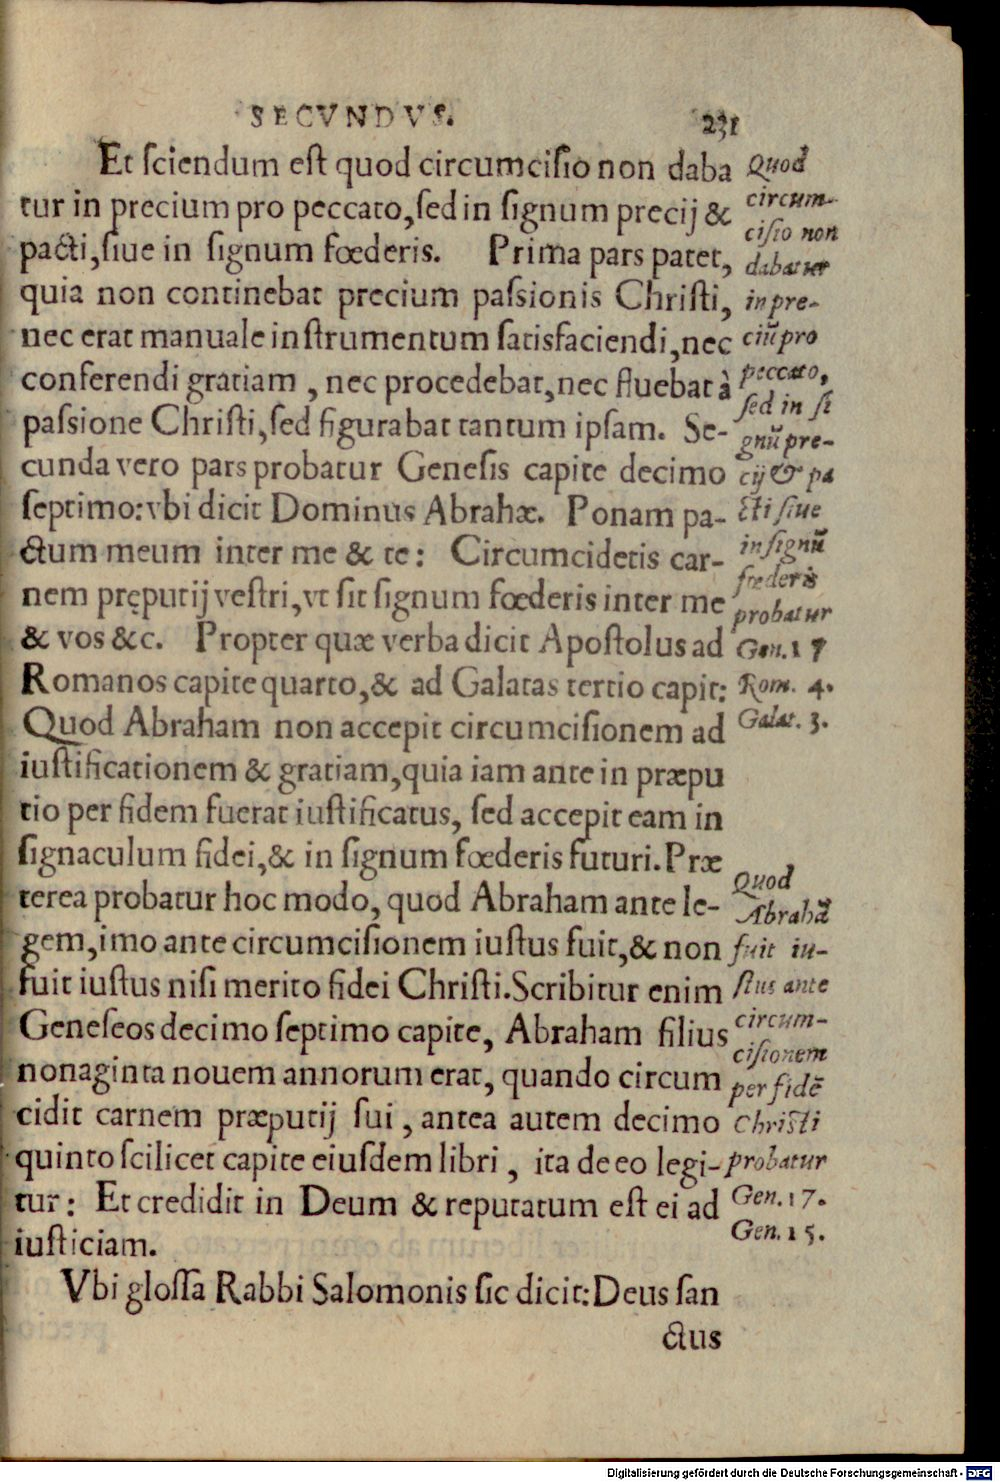 SECVNDVS. 231
Et ſciendum eſt quod circumciſio non daba
tur in precium pro peccato,ſed in ſignum precij &
pacti,ſiue in ſignum fœderis. Prima pars patet,
quia non continebat precium paſsionis Chriſti,
nec erat manuale inſtrumentum ſatisfaciendi,nec
conferendi gratiam , nec procedebat,nec fluebat à
paſsione Chriſti,ſed figurabat tantum ipſam. Se-
cunda vero pars probatur Geneſis capite decimo
ſeptimo:vbi dicit Dominus Abrahæ. Ponam pa-
ctum meum inter me & te: Circumcidetis car-
nem pręputij veſtri,vt ſit ſignum fœderis inter me
& vos &c. Propter quæ verba dicit Apoſtolus ad
Romanos capite quarto,& ad Galatas tertio capit:
Quod Abraham non accepit circumciſionem ad
iuſtificationem & gratiam,quia iam ante in præpu
tio per fidem fuerat iuſtificatus, ſed accepit eam in
ſignaculum fidei,& in ſignum fœderis futuri.Præ
terea probatur hoc modo, quod Abraham ante le-
gem,imo ante circumciſionem iuſtus fuit,& non
fuit iuſtus niſi merito fidei Chriſti.Scribitur enim
Geneſeos decimo ſeptimo capite, Abraham filius
nonaginta nouem annorum erat, quando circum
cidit carnem præputij ſui , antea autem decimo
quinto ſcilicet capite eiuſdem libri , ita de eo legi-
tur: Et credidit in Deum & reputatum eſt ei ad
iuſticiam.
Vbi gloſſa Rabbi Salomonis ſic dicit:Deus ſan
ctus
Quod
circum-
ciſio non
dabatur
in pre-
ciũ pro
peccato,
ſed in ſi
gnũ pre-
cij & pa
cti ſiue
in ſignũ
fœderis
probatur
Gen.17
Rom. 4.
Galat. 3.
Quod
Abrahã
fuit iu-
ſtus ante
circum-
ciſionem
per fidẽ
Chriſti
probatur
Gen.17.
Gen.15.
Digitalisierung gefördert durch die Deutsche Forschungsgemeinschaft - DFG